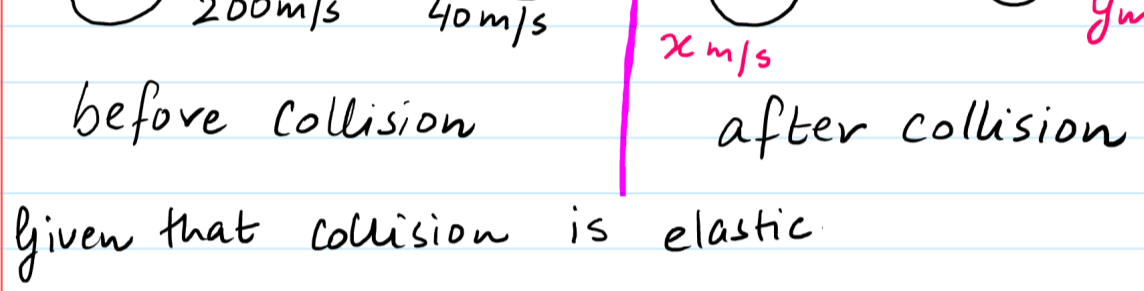 200m/s 40m/s
x m/s
before collision after collision
Given that collision is elastic.